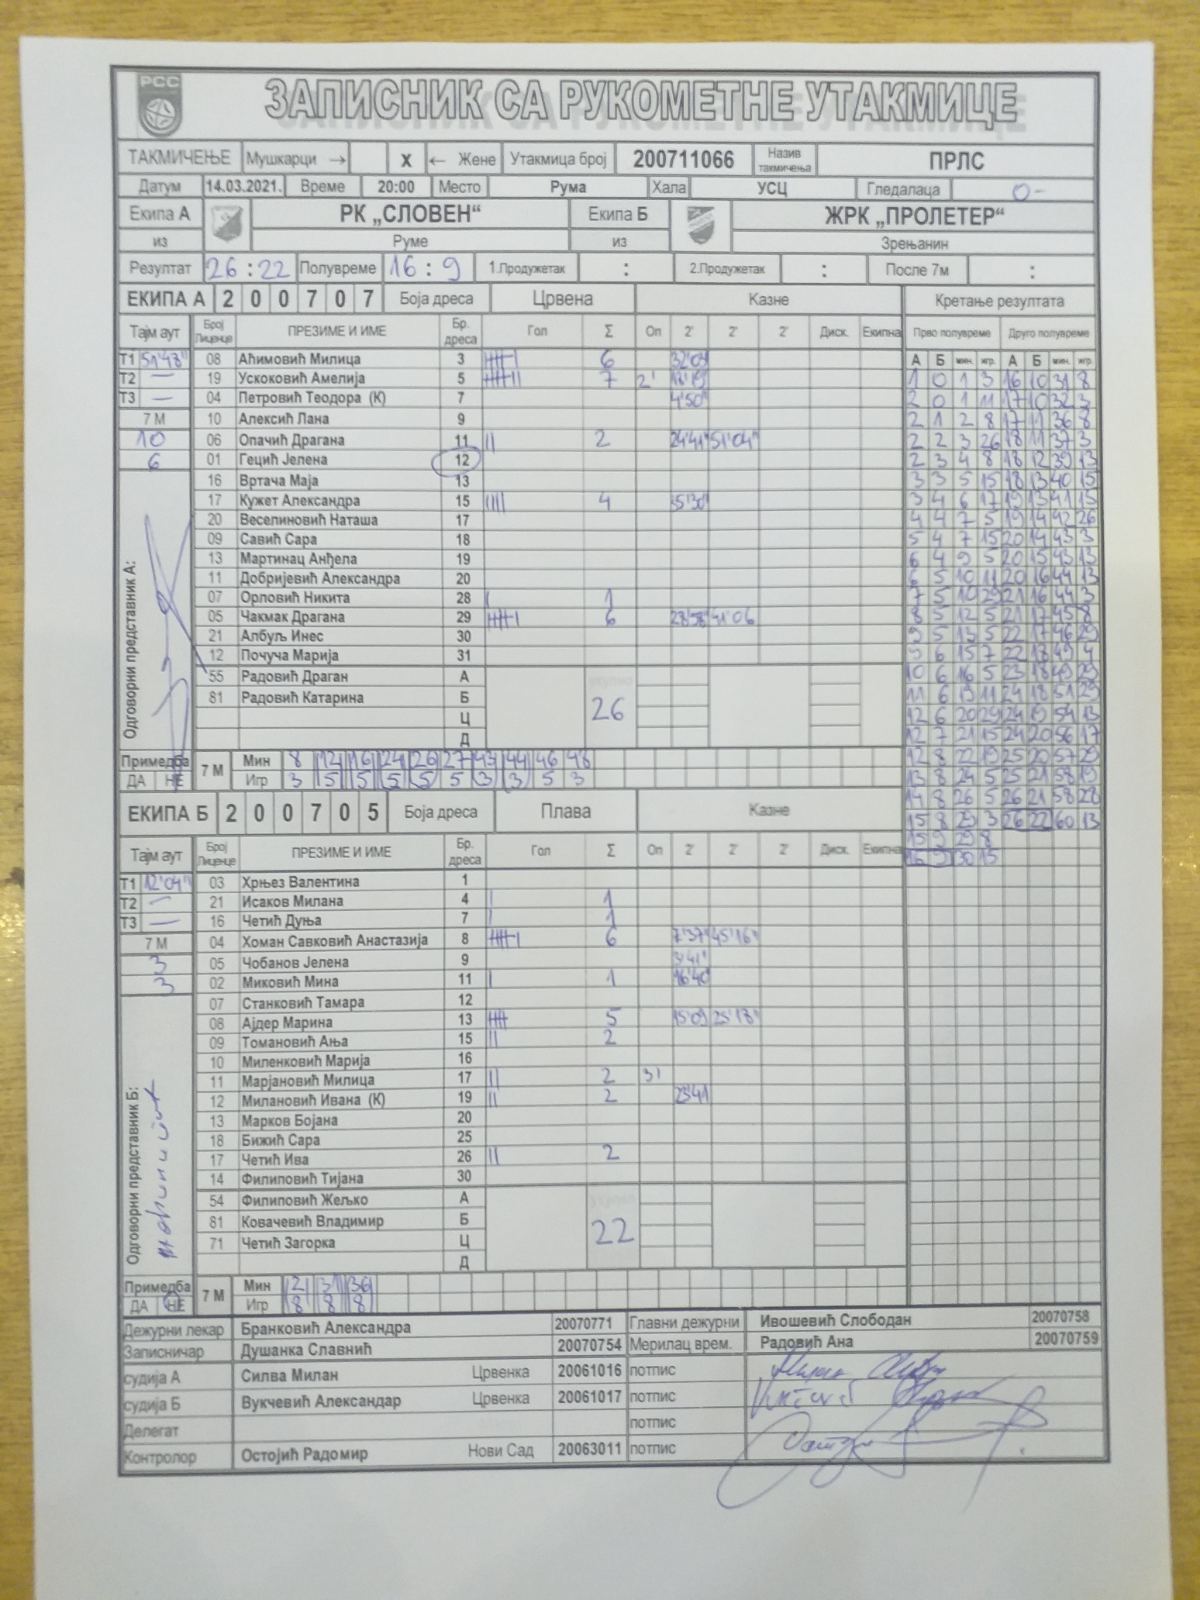 РСС
ЗАПИСНИК СА РУКОМЕТНЕ УТАКМИЦЕ
ТАКМИЧЕЊЕ Мушкарци → X ← Жене Утакмица број 200711066 Назив такмичења ПРЛС
Датум 14.03.2021. Време 20:00 Место Рума Хала УСЦ Гледалаца 0-
Екипа А РК „СЛОВЕН“ Екипа Б ЖРК „ПРОЛЕТЕР“
из Руме из Зрењанин
Резултат 26 : 22 Полувреме 16 : 9 1.Продужетак : 2.Продужетак : После 7м :
ЕКИПА А 2 0 0 7 0 7 Боја дреса Црвена Казне Кретање резултата
Тајм аут Број Лиценце ПРЕЗИМЕ И ИМЕ Бр. дреса Гол Σ Оп 2' 2' 2' Диск. Екипна Прво полувреме Друго полувреме
А Б мин. игр. А Б мин. игр.
Т1 51'48" 08 Аћимовић Милица 3 6
Т2 — 19 Ускоковић Амелија 5 7 2'
Т3 — 04 Петровић Теодора (К) 7 4'50"
7 М 10 Алексић Лана 9
10 06 Опачић Драгана 11 2 24'41" 51'04"
6 01 Гецић Јелена 12
16 Вртача Маја 13
17 Кужет Александра 15 4 35'30"
20 Веселиновић Наташа 17
09 Савић Сара 18
13 Мартинац Анђела 19
11 Добријевић Александра 20
07 Орловић Никита 28 1
05 Чакмак Драгана 29 6 28'58" 41'06
21 Албуљ Инес 30
12 Почуча Марија 31
55 Радовић Драган А
81 Радовић Катарина Б 26
Ц
Д
Одговорни представник А:
1 0 1 3 16 10 31 8
2 0 1 11 17 10 32 3
2 1 2 8 17 11 36 8
2 2 3 26 18 11 37 3
2 3 4 8 18 12 39 13
3 3 5 15 18 13 40 15
3 4 6 17 19 13 41 15
4 4 7 5 19 14 42 26
5 4 7 15 20 14 43 3
6 4 9 5 20 15 43 13
6 5 10 11 20 16 44 13
7 5 10 29 21 16 44 3
8 5 12 5 21 17 45 8
9 5 13 5 22 17 46 29
9 6 15 7 22 18 49 4
10 6 16 5 23 18 49 29
11 6 19 11 24 18 51 29
12 6 20 29 24 19 54 13
12 7 21 15 24 20 56 17
12 8 22 19 25 20 57 29
13 8 24 5 25 21 58 19
14 8 26 5 26 21 58 28
15 8 29 3 26 22 60 13
15 9 29 8
16 9 30 15
Примедба ДА НЕ 7 М Мин 8 12 16 24 26 27 43 44 46 48
Игр 3 5 5 5 5 5 3 3 5 3
ЕКИПА Б 2 0 0 7 0 5 Боја дреса Плава Казне
Тајм аут Број Лиценце ПРЕЗИМЕ И ИМЕ Бр. дреса Гол Σ Оп 2' 2' 2' Диск. Екипна
Т1 12'04" 03 Хрњез Валентина 1
Т2 — 21 Исаков Милана 4 1
Т3 — 16 Четић Дуња 7 1
7 М 04 Хоман Савковић Анастазија 8 6 7'37" 45'16"
3 05 Чобанов Јелена 9 3'41"
3 02 Миковић Мина 11 1 16'40"
07 Станковић Тамара 12
08 Ајдер Марина 13 5 15'09 25'18"
09 Томановић Ања 15 2
10 Миленковић Марија 16
11 Марјановић Милица 17 2 3'
12 Милановић Ивана (К) 19 2
13 Марков Бојана 20
18 Бижић Сара 25
17 Четић Ива 26 2
14 Филиповић Тијана 30
54 Филиповић Жељко А
81 Ковачевић Владимир Б 22
71 Четић Загорка Ц
Д
Одговорни представник Б:
Примедба ДА НЕ 7 М Мин 21 31 36
Игр 8 8 8
Дежурни лекар Бранковић Александра 20070771 Главни дежурни Ивошевић Слободан 20070758
Записничар Душанка Славнић 20070754 Мерилац врем. Радовић Ана 20070759
судија А Силва Милан Црвенка 20061016 потпис
судија Б Вукчевић Александар Црвенка 20061017 потпис
Делегат потпис
Контролор Остојић Радомир Нови Сад 20063011 потпис